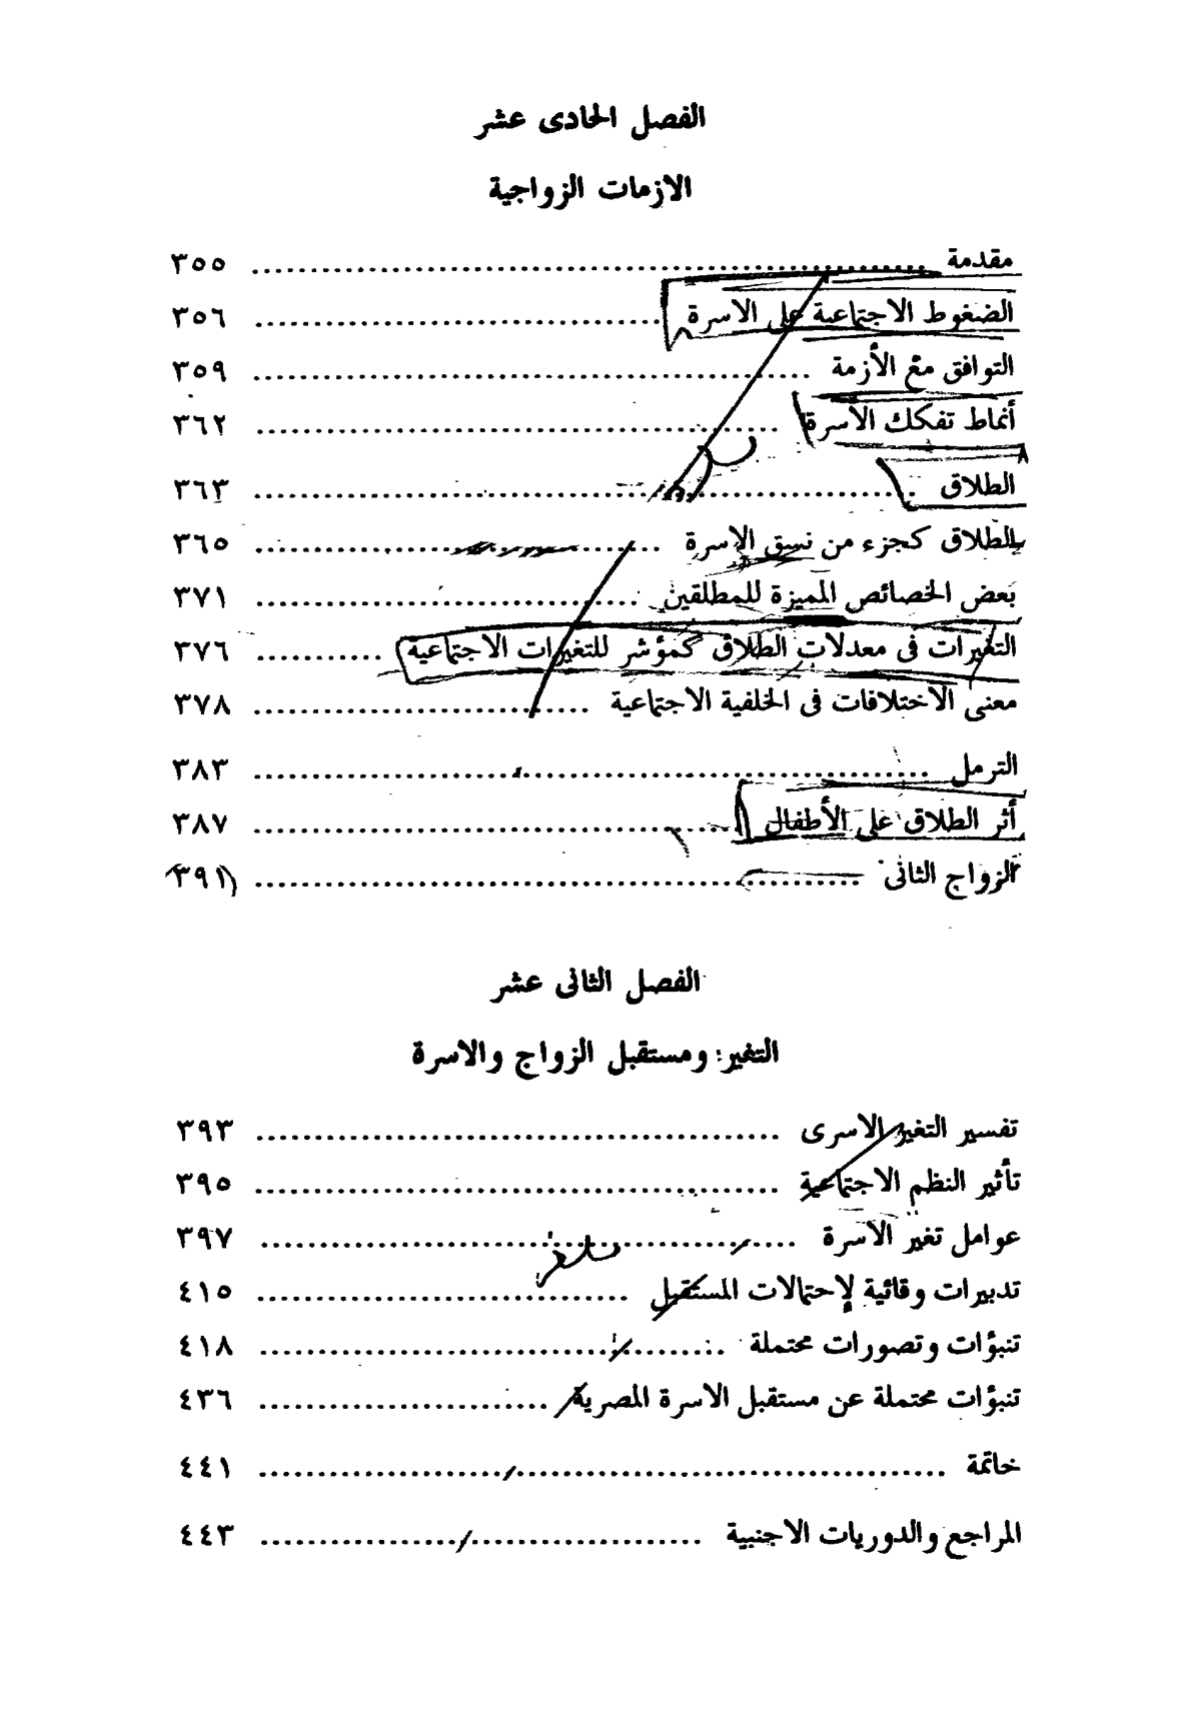 الفصل الحادى عشر
الازمات الزواجية
مقدمة ........................................ ٣٥٥
الضغوط الاجتماعية على الاسرة ........................................ ٣٥٦
التوافق مع الأزمة ........................................ ٣٥٩
أنماط تفكك الأسرة ........................................ ٣٦٢
الطلاق ........................................ ٣٦٣
الطلاق كجزء من نسق الاسرة ........................................ ٣٦٥
بعض الخصائص المميزة للمطلقين ........................................ ٣٧١
التغيرات فى معدلات الطلاق كمؤشر للتغيرات الاجتماعية ............ ٣٧٦
معنى الاختلافات فى الخلفية الاجتماعية .............................. ٣٧٨
الترمل ........................................ ٣٨٣
أثر الطلاق على الأطفال ........................................ ٣٨٧
الزواج الثانى ........................................ (٣٩١)
الفصل الثانى عشر
التغير: ومستقبل الزواج والاسرة
تفسير التغير الاسرى ........................................ ٣٩٣
تأثير النظم الاجتماعية ........................................ ٣٩٥
عوامل تغير الأسرة ........................................ ٣٩٧
تدبيرات وقائية لإحتمالات المستقبل .............................. ٤١٥
تنبؤات وتصورات محتملة ........................................ ٤١٨
تنبؤات محتملة عن مستقبل الاسرة المصرية .............................. ٤٣٦
خاتمة ........................................ ٤٤١
المراجع والدوريات الاجنبية ........................................ ٤٤٣